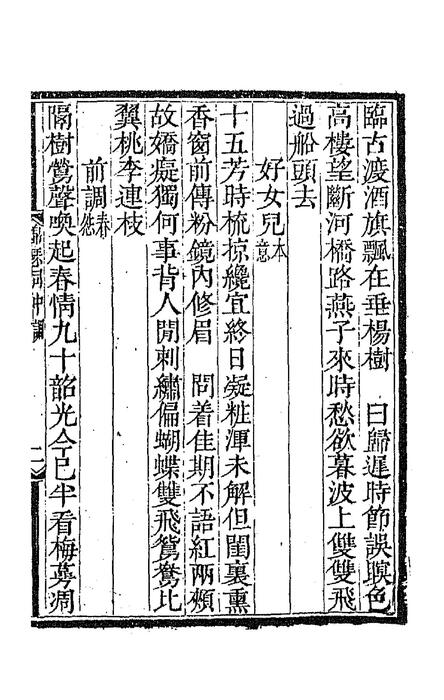 臨古渡酒旗飄在垂楊樹　曰歸遲時節誤暝色
高樓望斷河橋路燕子來時愁欲暮波上雙雙飛
過船頭去
好女兒本意
十五芳時梳掠纔宜終日凝粧渾未解但閨裏熏
香窗前傅粉鏡內修眉　問着佳期不語紅兩頰
故嬌癡獨何事背人閒刺繡偏蝴蝶雙飛鴛鴦比
翼桃李連枝
前調春愁
隔樹鶯聲喚起春情九十韶光今已半看梅萼凋
錦瑟詞中調